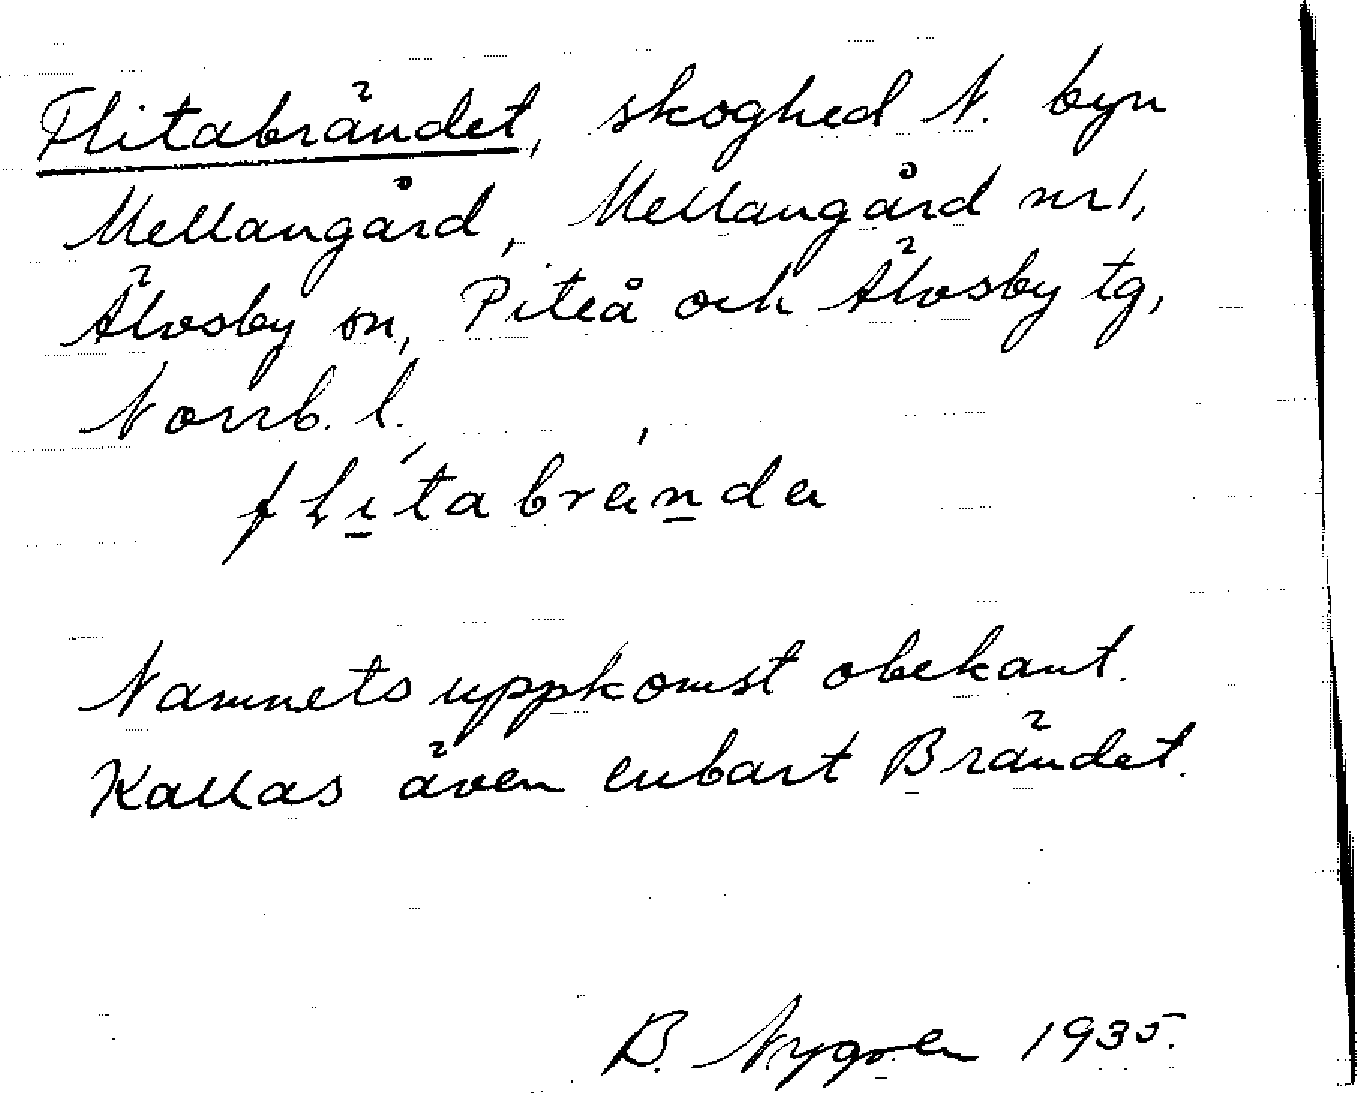 Flitabrändet, skoghed N. byn
Mellangård, Mellangård nr 1,
Älvsby sn, Piteå och Älvsby tg,
Norrb. l.
flitabrända
Namnets uppkomst obekant.
Kallas även enbart Brändet.
B. Nygren 1935.